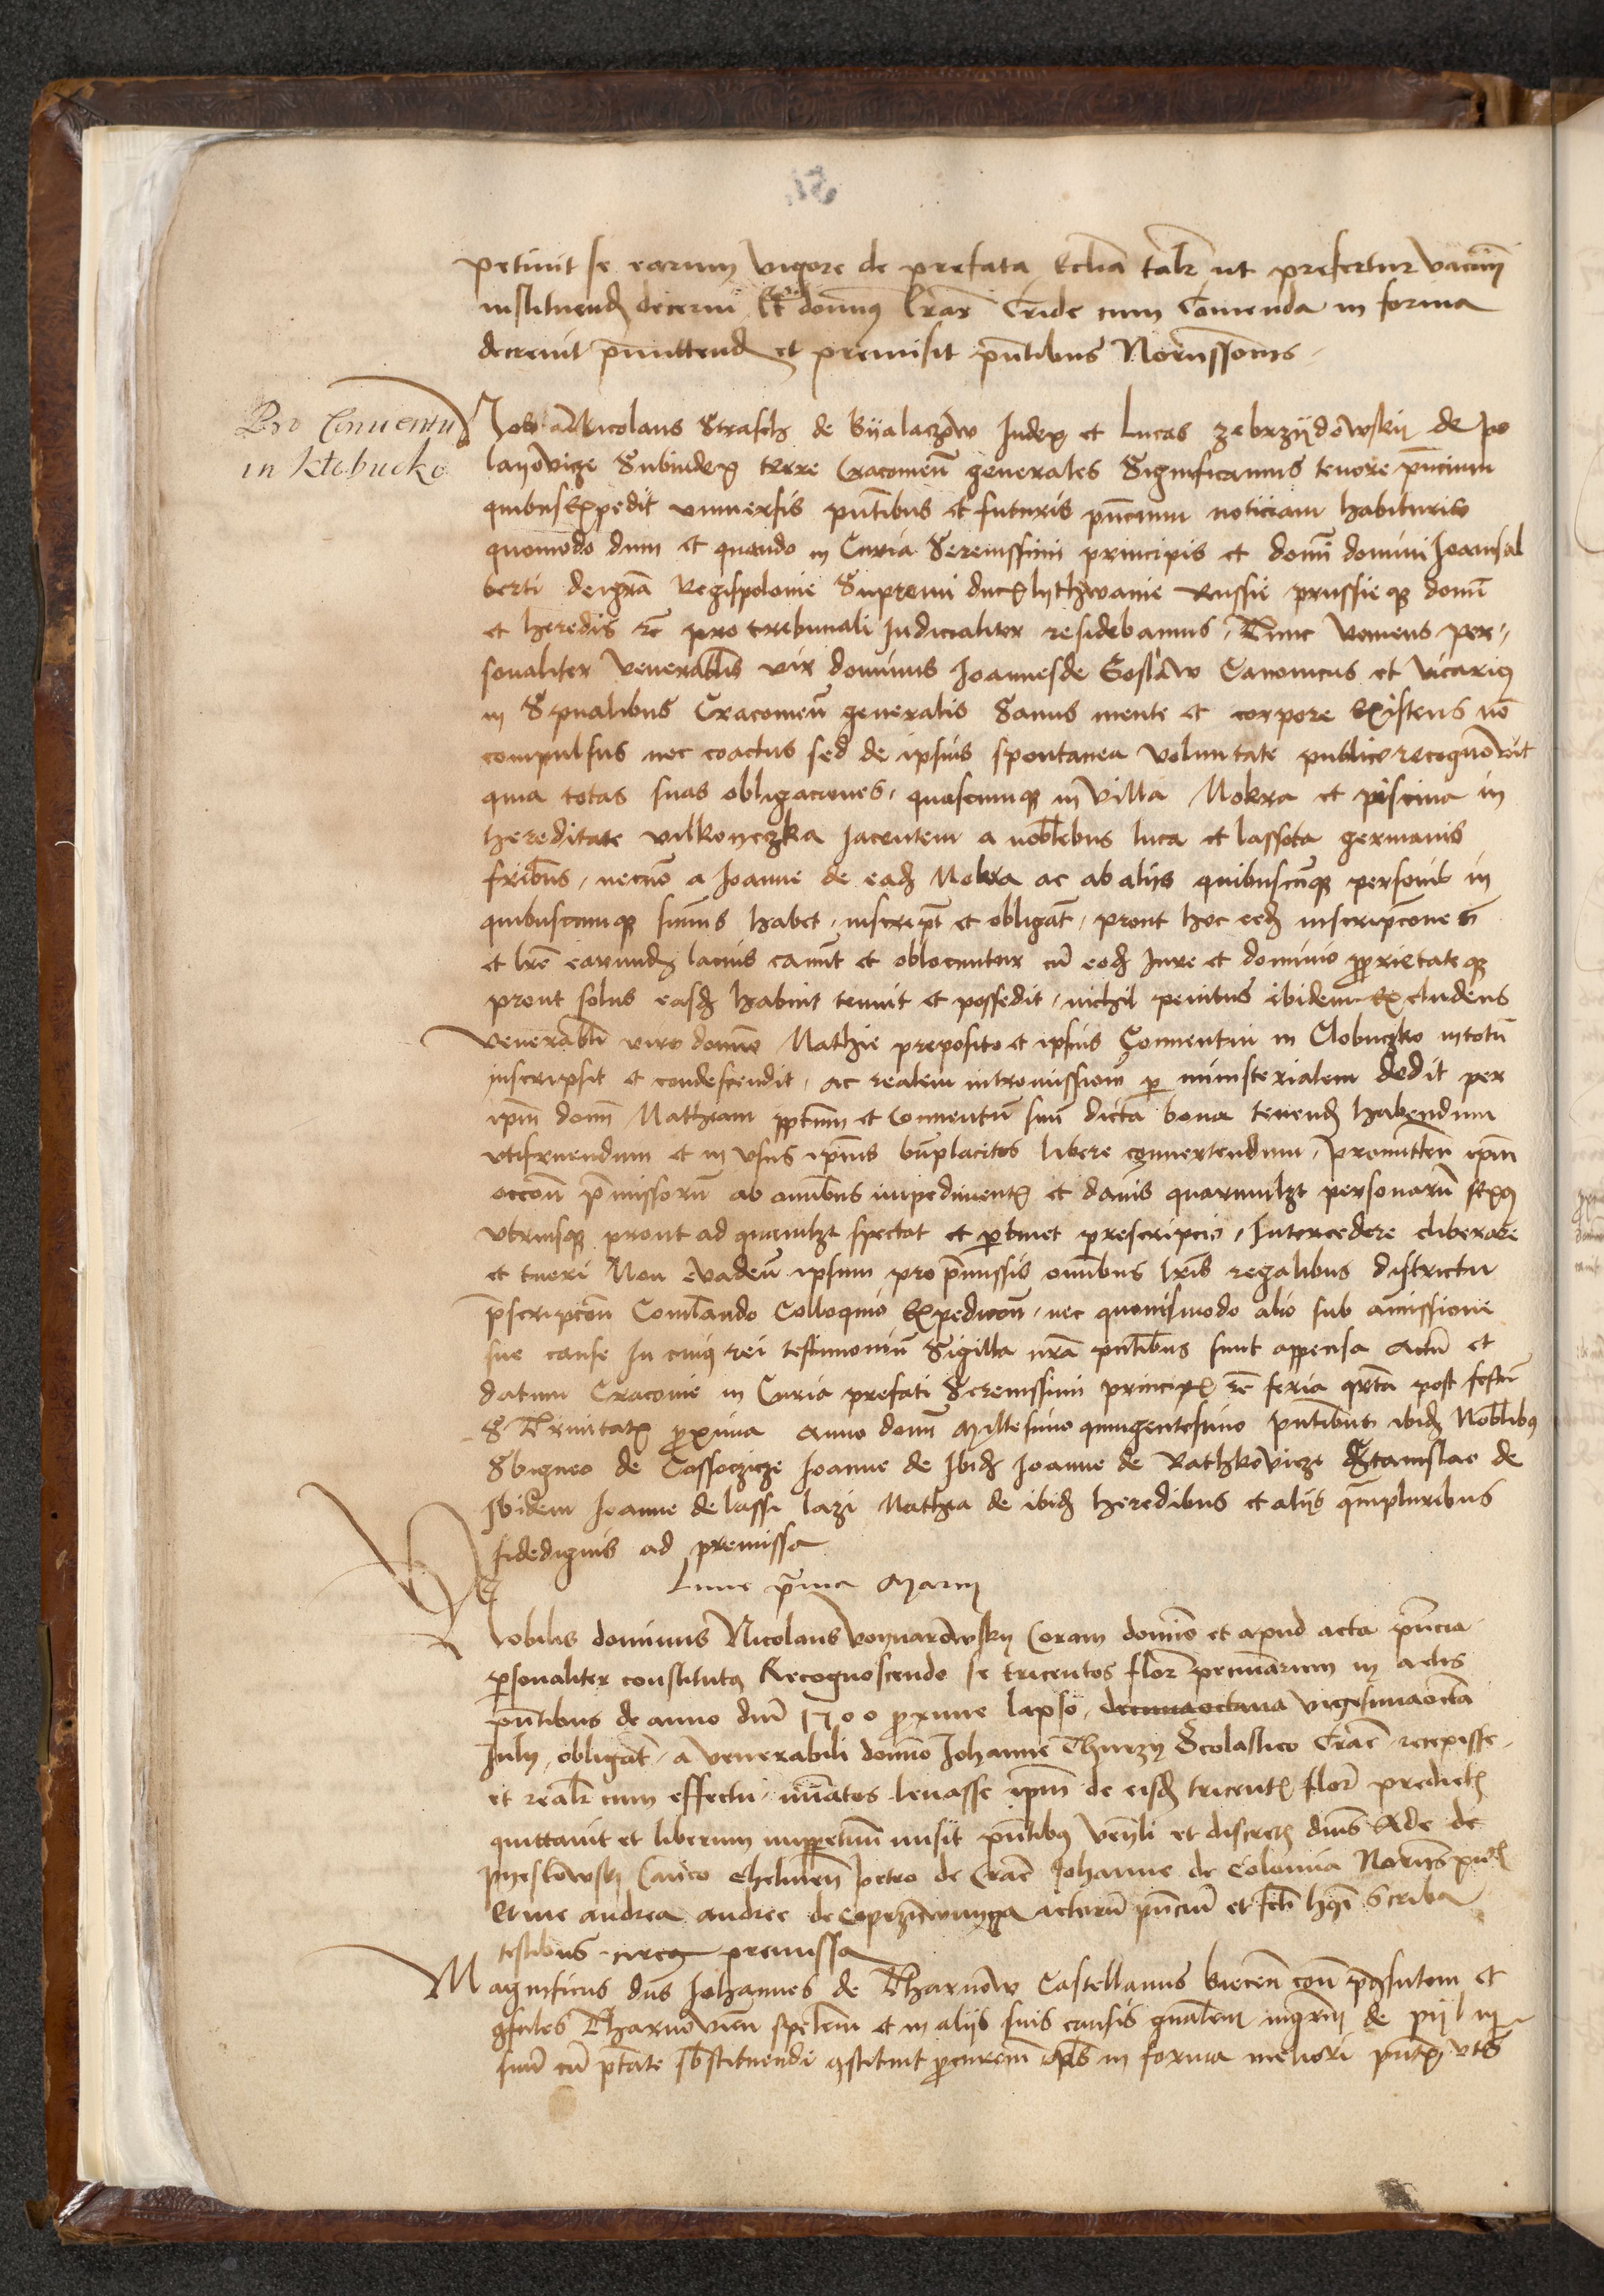 petiuit se earum vigore de prefata Ecclia talr ut prefertur vacañ
instituend decerni Et domus Lras Cride cum Comenda in forma
decreuit pmittend et premisit pntibus
Pro Conuentu
in Kłobucko
Nicolaus Strasch de Byalaczow Judex et Lucas Zebrzydowsky de po
layovicze Subiudex terre Cracouień generales Significamus tenore pncium
quibus Expedit vniuersis pntibus et futuris pncium noticiam habituris
quomodo dum et quando in Curia Serenissimi principis et domi domini Joannis al
berti dei gra Regis polonie Supremi ducis lythwanie Russie prussieqz domi
et heredis rc pro tribunali Judicialiter residebamus, Tunc veniens per
sonaliter venerablis vir dominus Joannes de Goslaw Canonicus et vicarius
in Spualibus Cracouień generalis Sanus mente et corpore Existens nō
compulsus nec coactus sed de ipsius spontanea voluntate publice recognovit
quia totas suas obligaciones, quascumqz in villa Mokra et piscina in
hereditate vilkoyeczka Jacentem a noblibus luca et lassota germanis
fribus, necnō a Joanne de eadz Mokra ac ab alijs quibuscumqz personis in
quibuscumqz summis habet, inscript et obligat, prout hec eedz inscripcones
et lre earundz lacius canunt et oblocuntur cū eodz Jure et dominio proprietateqz
prout solus easdz habuit tenuit et possedit, nichil penitus ibidem Excludens
venerabli viro domio Mathie preposito et ipsius Conuentui in Clobuczko in totū
inscripsit et condescendit, ac realem intromissiom p ministerialem dedit per
ipm dom Mathiam pptum et Conuentū suū dicta bona tenendz habendum
vtifruendum et in vsus ipius bnplacitos libere conuertendum, promitten ipm
occon pmissorū ab omibus impedimentis et damis quarumlzt personarū sexus
vtriusqz prout ad quamlzt spectat et ptinet prescripcio, Intercedere eliberare
et tueri Non evaden ipsum pro pmissis omibus lris regalibus districtu
pscripcon Comendo Colloquio Expedicon, nec quouismodo alio sub amissione
sue cause In cuius rei testimoniū Sigilla nra pntibus sunt appensa Actū et
datum Cracouie in Curia prefati Serenissimi principis rc feria qrta post festū
S Trinitatis proxima Anno domi Millesimo quingentesimo pntibus ibidz Noblibus
Sbigneo de Cossoczicze Joanne de Ibidz Joanne de Rathkovicze Stanislao de
Ibidem Joanne de lassi lazi Mathia de ibidz heredibus et alijs qmpluribus
fidedignis ad premissa
Lune prima Marcij
Nobilis dominus Nicolaus Voynarowsky Coram domio et apud acta pncia
psonaliter constitutus Recognoscendo se tricentos flor pecuniarum in actis
pntibus de anno dni 1500 proxime lapso, decimaoctaua vigesimaocta
July, obligat, a venerabili domio Johanne Thurzy Scolastico Crac recepisse
et realr cum effectu, nuatos leuasse ipm de eisdz tricentis flor predictis
quittauit et liberum imperpetuum misit pntibus venli et discretis dnis Ade de
Canco Chelmen Petro de Crac Johanne de Colonia
Et me andrea andree de actorū pnciū et scriba
testibus circa premissa
Magnificus dus Johannes de Tharnow Castellanus biecen
Tharnovien spelem et in alijs suis causis gnalem mgrm de pijl
suū cū ptate sbstituendi constituit procurem in forma meliori pntibus vts